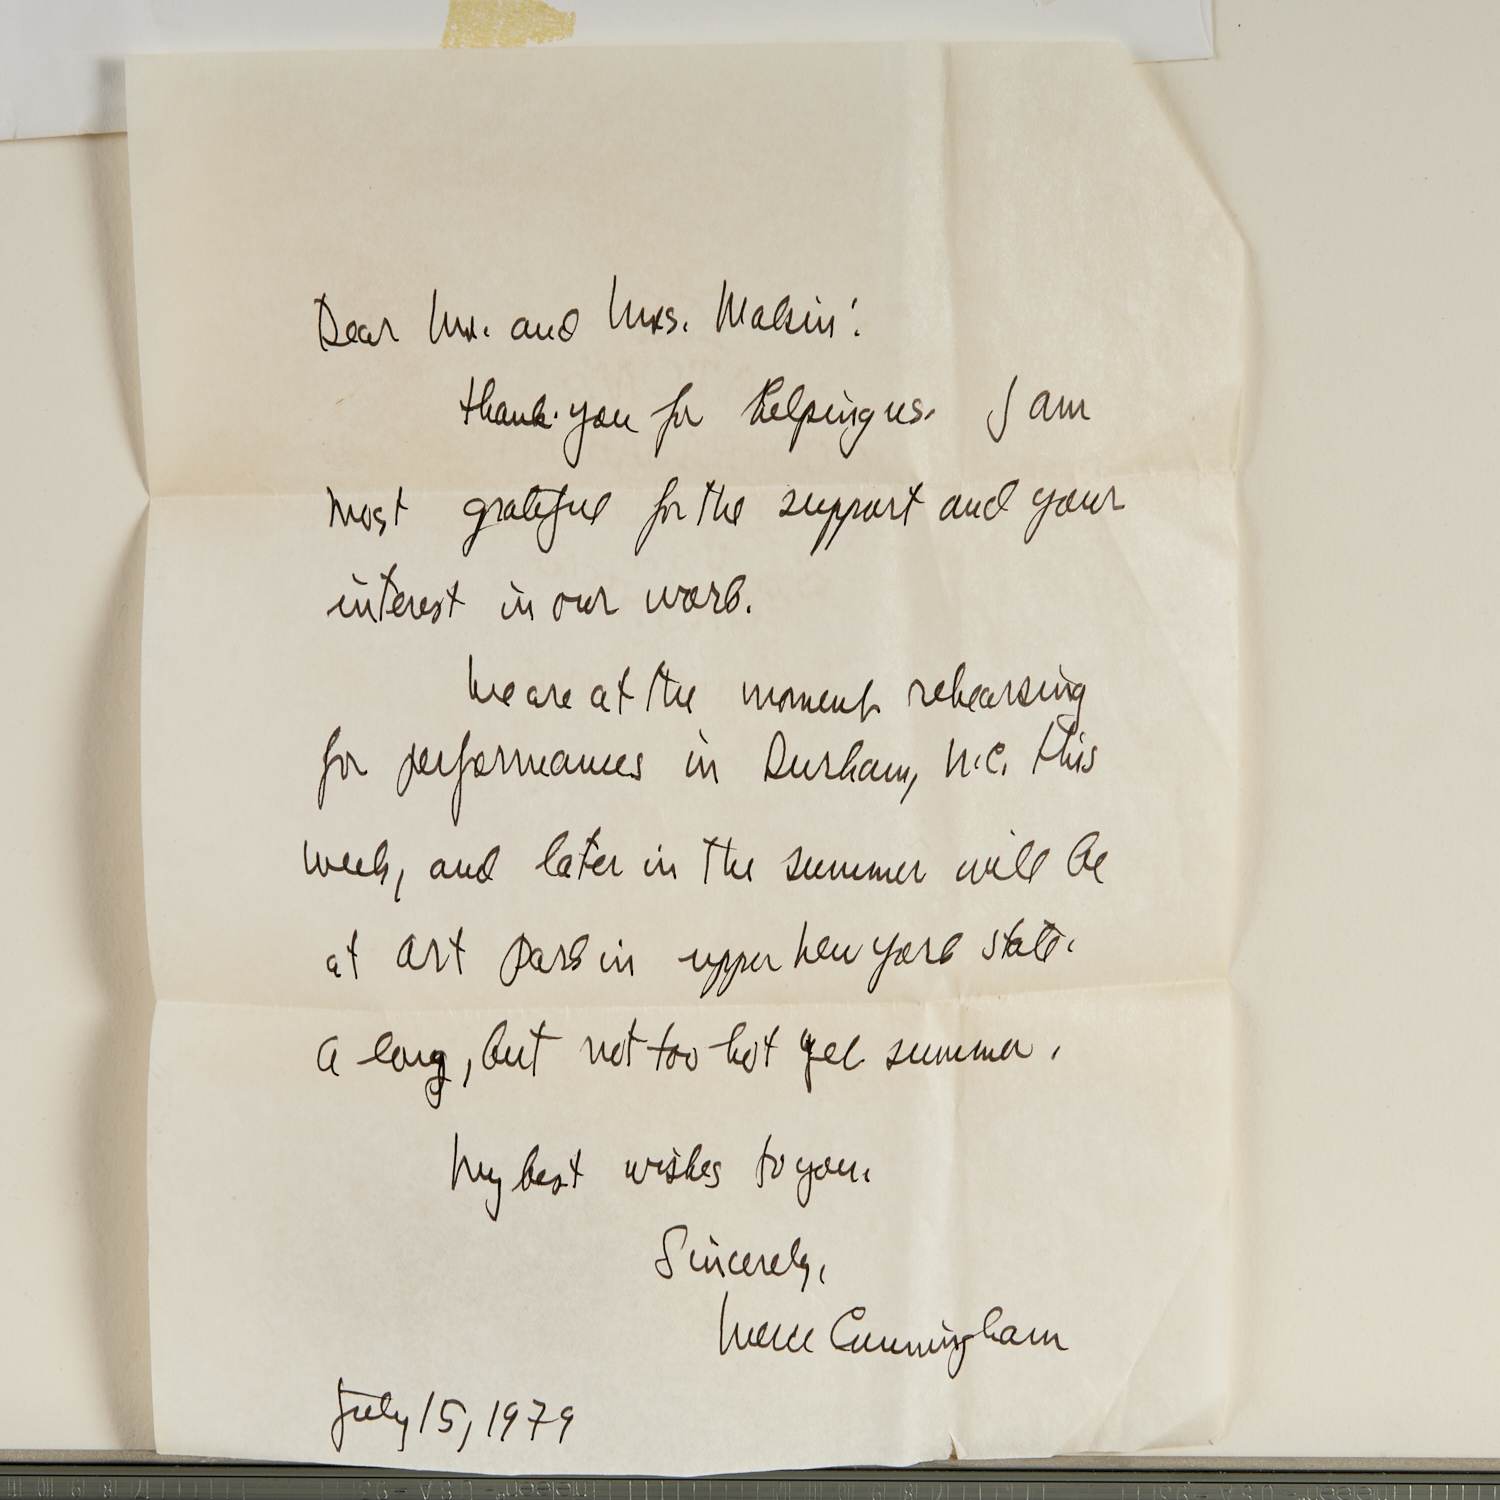 Dear Mr. and Mrs. Malsin:
thank you for helping us. I am
most grateful for the support and your
interest in our work.
We are at the moment rehearsing
for performances in Durham, N.C. this
week, and later in the summer will be
at Art Park in upper New York state.
A long, but not too hot yet summer.
My best wishes to you.
Sincerely,
Merce Cunningham
July 15, 1979